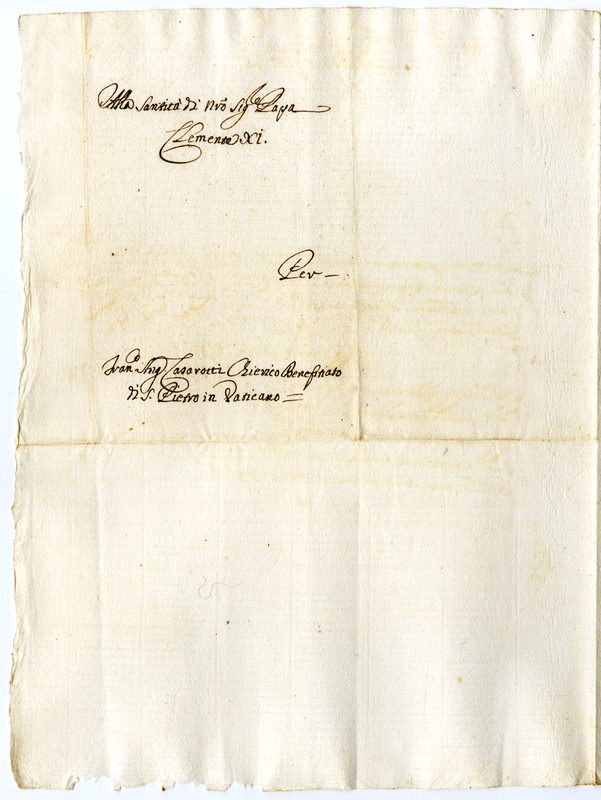 Alla Santità di Nrõ Sigre Papa
Clemente XI.
Per
Franco Casarotti Chierico Benefitiato
di S. Pietro in Vaticano